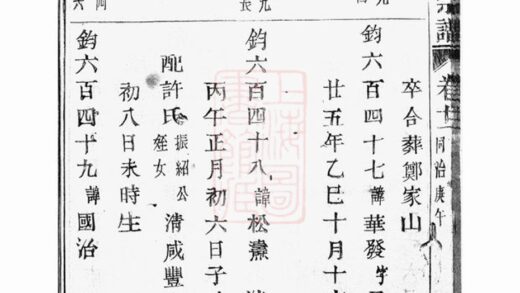 宗譜
卷
同治庚午
卒合葬鄭家山
鈞六百四十七諱華發字
廿五年乙巳十月十
鈞六百四十八諱松
丙午正月初六日子
配許氏振紹公姪女清咸豐
初八日未時生
鈞六百四十九諱國治